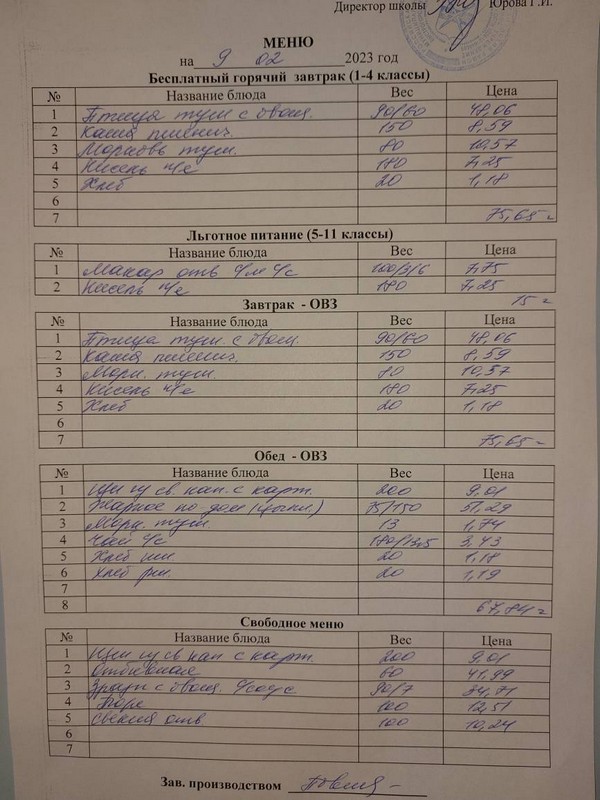 Директор школы Юрова Г.И.
МЕНЮ
на 9 02 2023 год
Бесплатный горячий завтрак (1-4 классы)
№ Название блюда Вес Цена
1 Птица туш с овощ. 90/60 48,06
2 Каша пшенич. 150 8,59
3 Морковь туш. 80 10,57
4 Кисель п/с 180 7,25
5 Хлеб 20 1,18
6
7 75,65
Льготное питание (5-11 классы)
№ Название блюда Вес Цена
1 Макар отв с/м с/с 100/3/6 7,75
2 Кисель п/с 180 7,25
15
Завтрак - ОВЗ
№ Название блюда Вес Цена
1 Птица туш. с овощ. 90/60 48,06
2 Каша пшенич. 150 8,59
3 Морк. туш. 80 10,57
4 Кисель п/с 180 7,25
5 Хлеб 20 1,18
6
7 75,65
Обед - ОВЗ
№ Название блюда Вес Цена
1 Щи из св. кап. с карт. 200 9,01
2 Жаркое по дом 75/150 51,29
3 Морк. туш. 13 1,74
4 Чай с/с 180/13,5 3,43
5 Хлеб пш. 20 1,18
6 Хлеб рж. 20 1,19
7
8 67,84
Свободное меню
№ Название блюда Вес Цена
1 Щи из св кап с карт. 200 9,01
2 Отбивная 60 41,99
3 с овощ. с/соус 90/7 34,71
4 Пюре 100 12,51
5 Свекла отв 100 10,24
6
7
Зав. производством